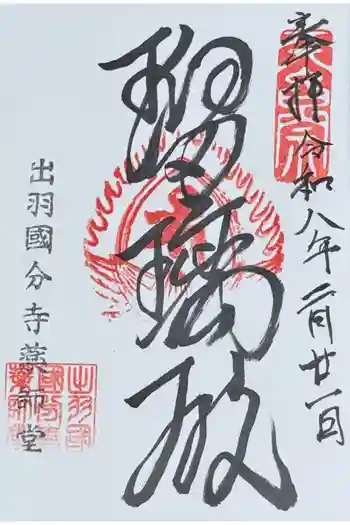 奉拝 令和八年二月廿一日
瑠璃殿
出羽國分寺薬師堂